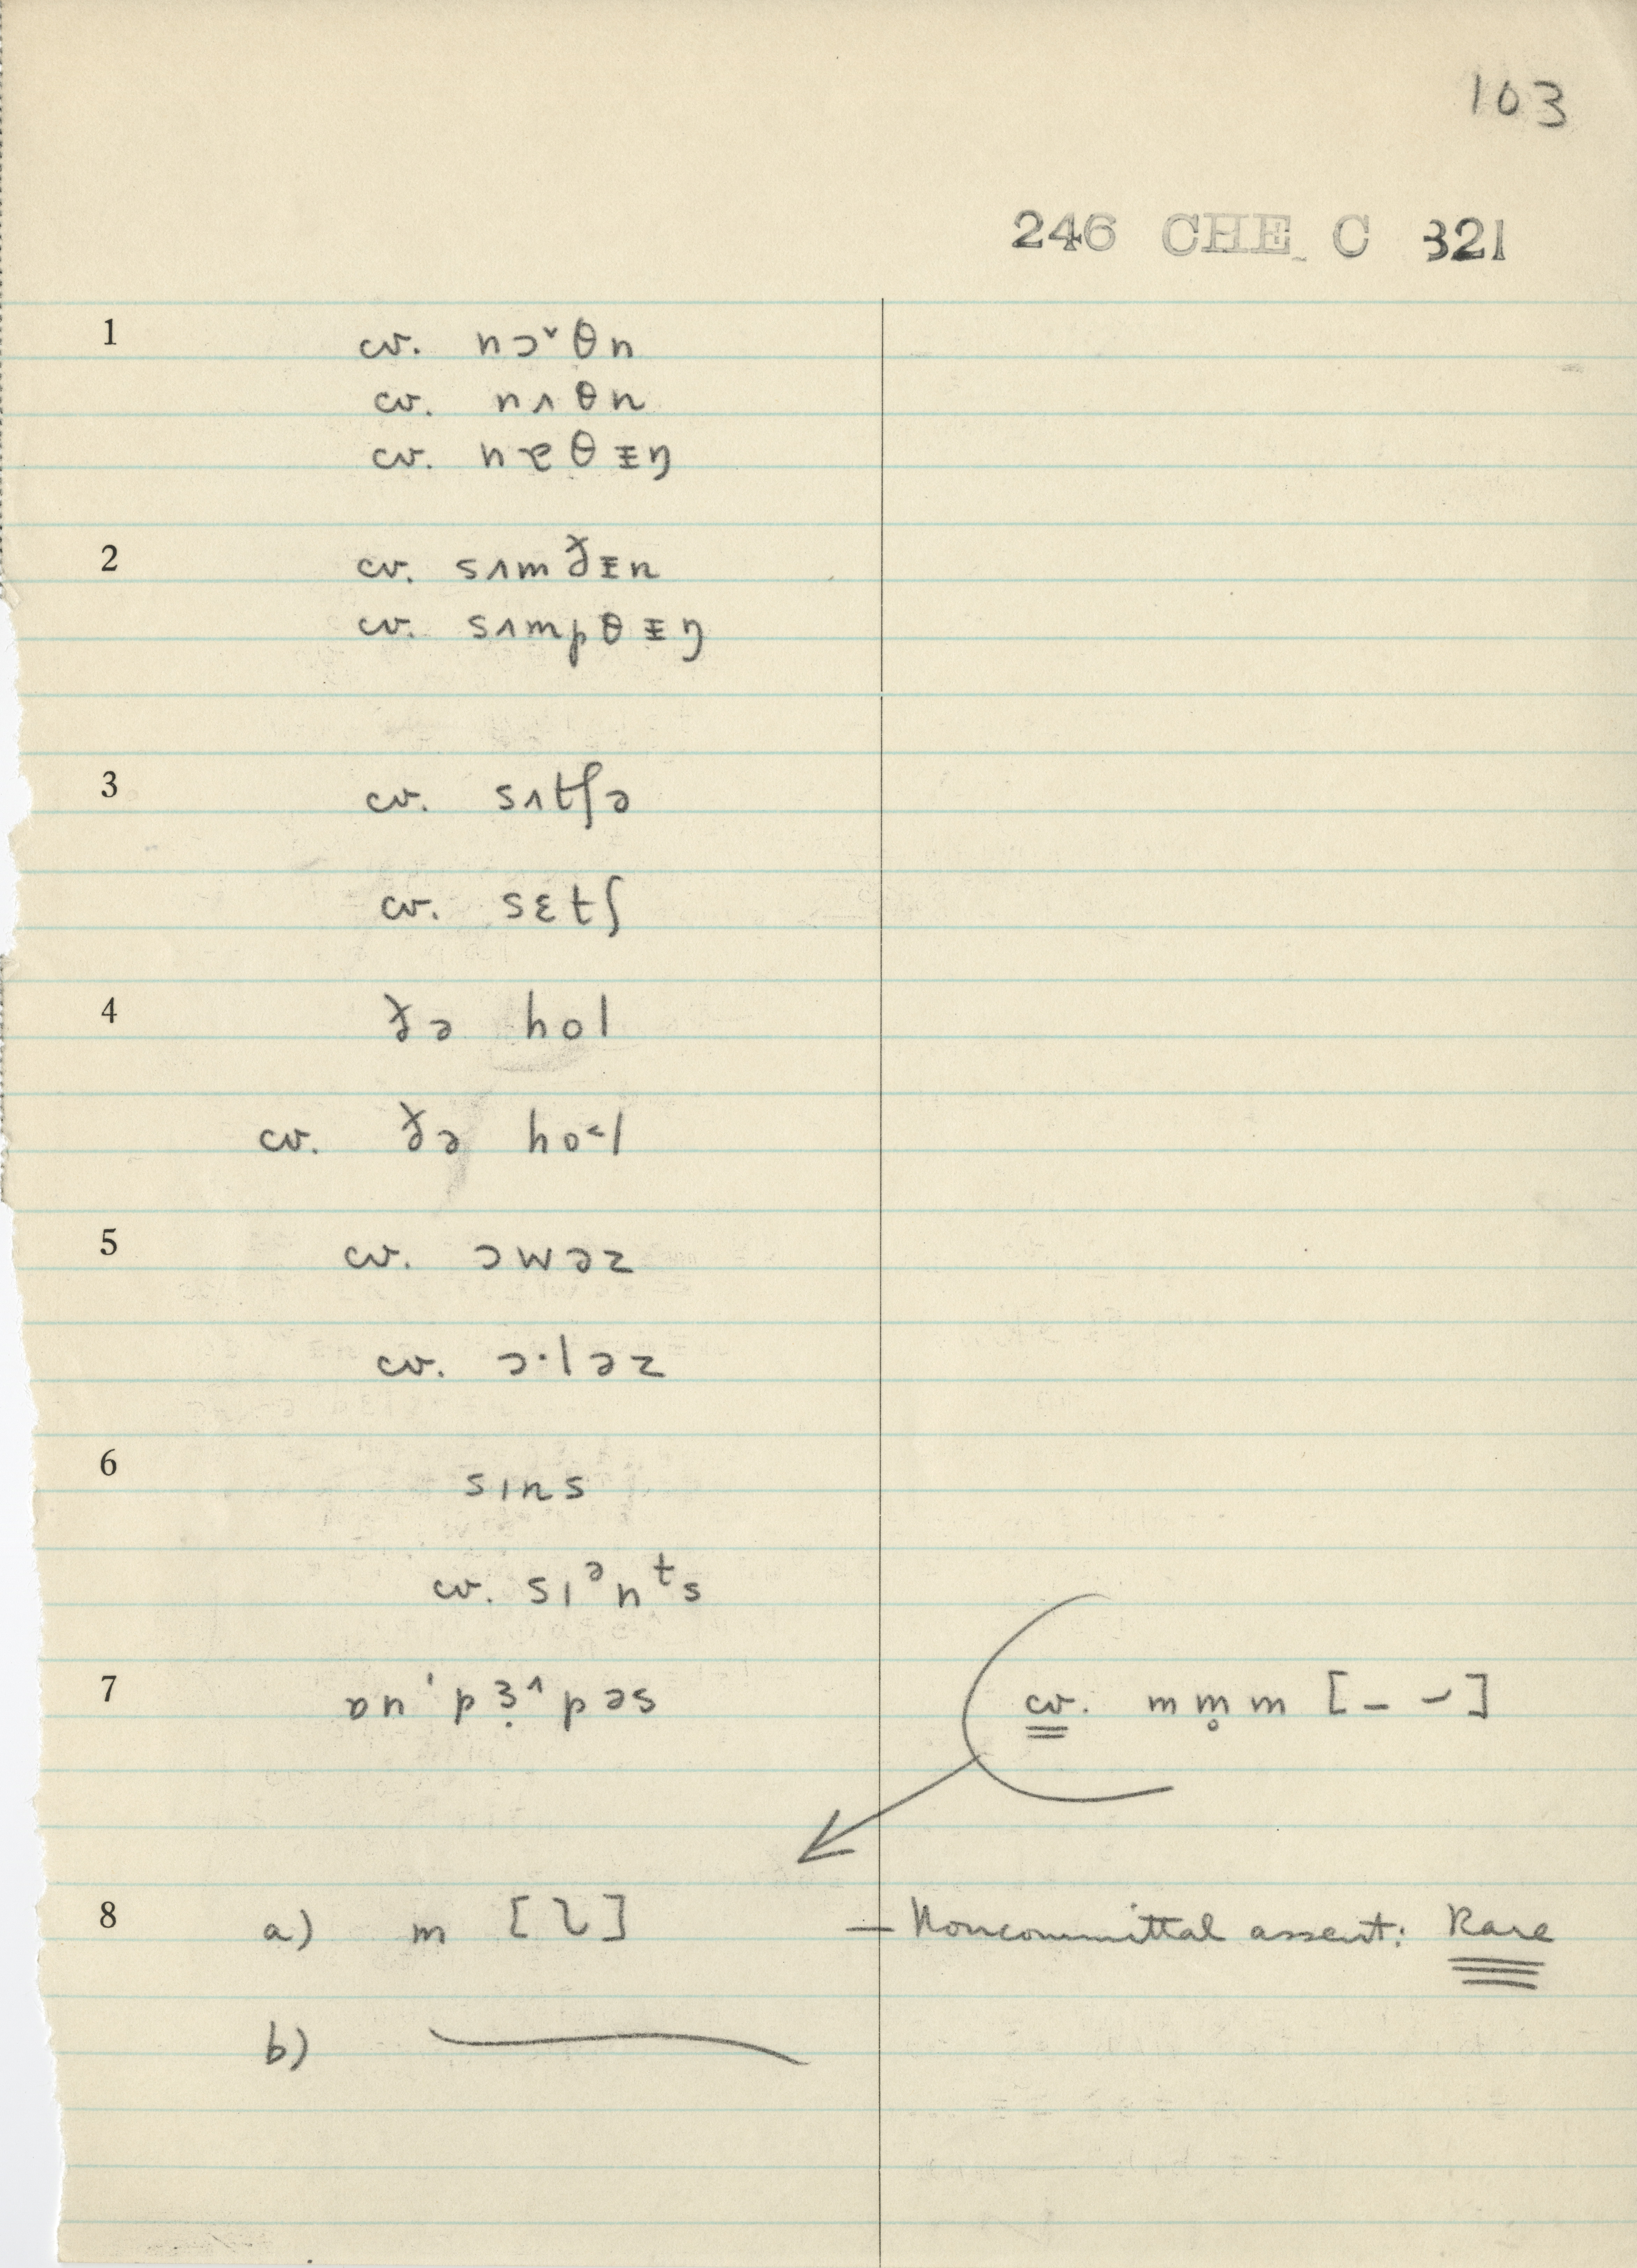 103
246 CHE C 321
1 cv. nɔ˅θn
cv. nʌθn
cv. nɐθᵻŋ
2 cv. sʌmðᵻn
cv. sʌmpθᵻŋ
3 cv. sʌtʃə
cv. sɛtʃ
4 ðə hol
cv. ðə ho˂l
5 cv. ɔwəz
cv. ɔ·ləz
6 sɪns
cv. sɪᵊnᵗs
7 ɒn ˈpɜ̣˄pəs
cv. m m̥ m [– ⌣]
8 a) m [ʅ] — Noncommittal assent: Rare
b)